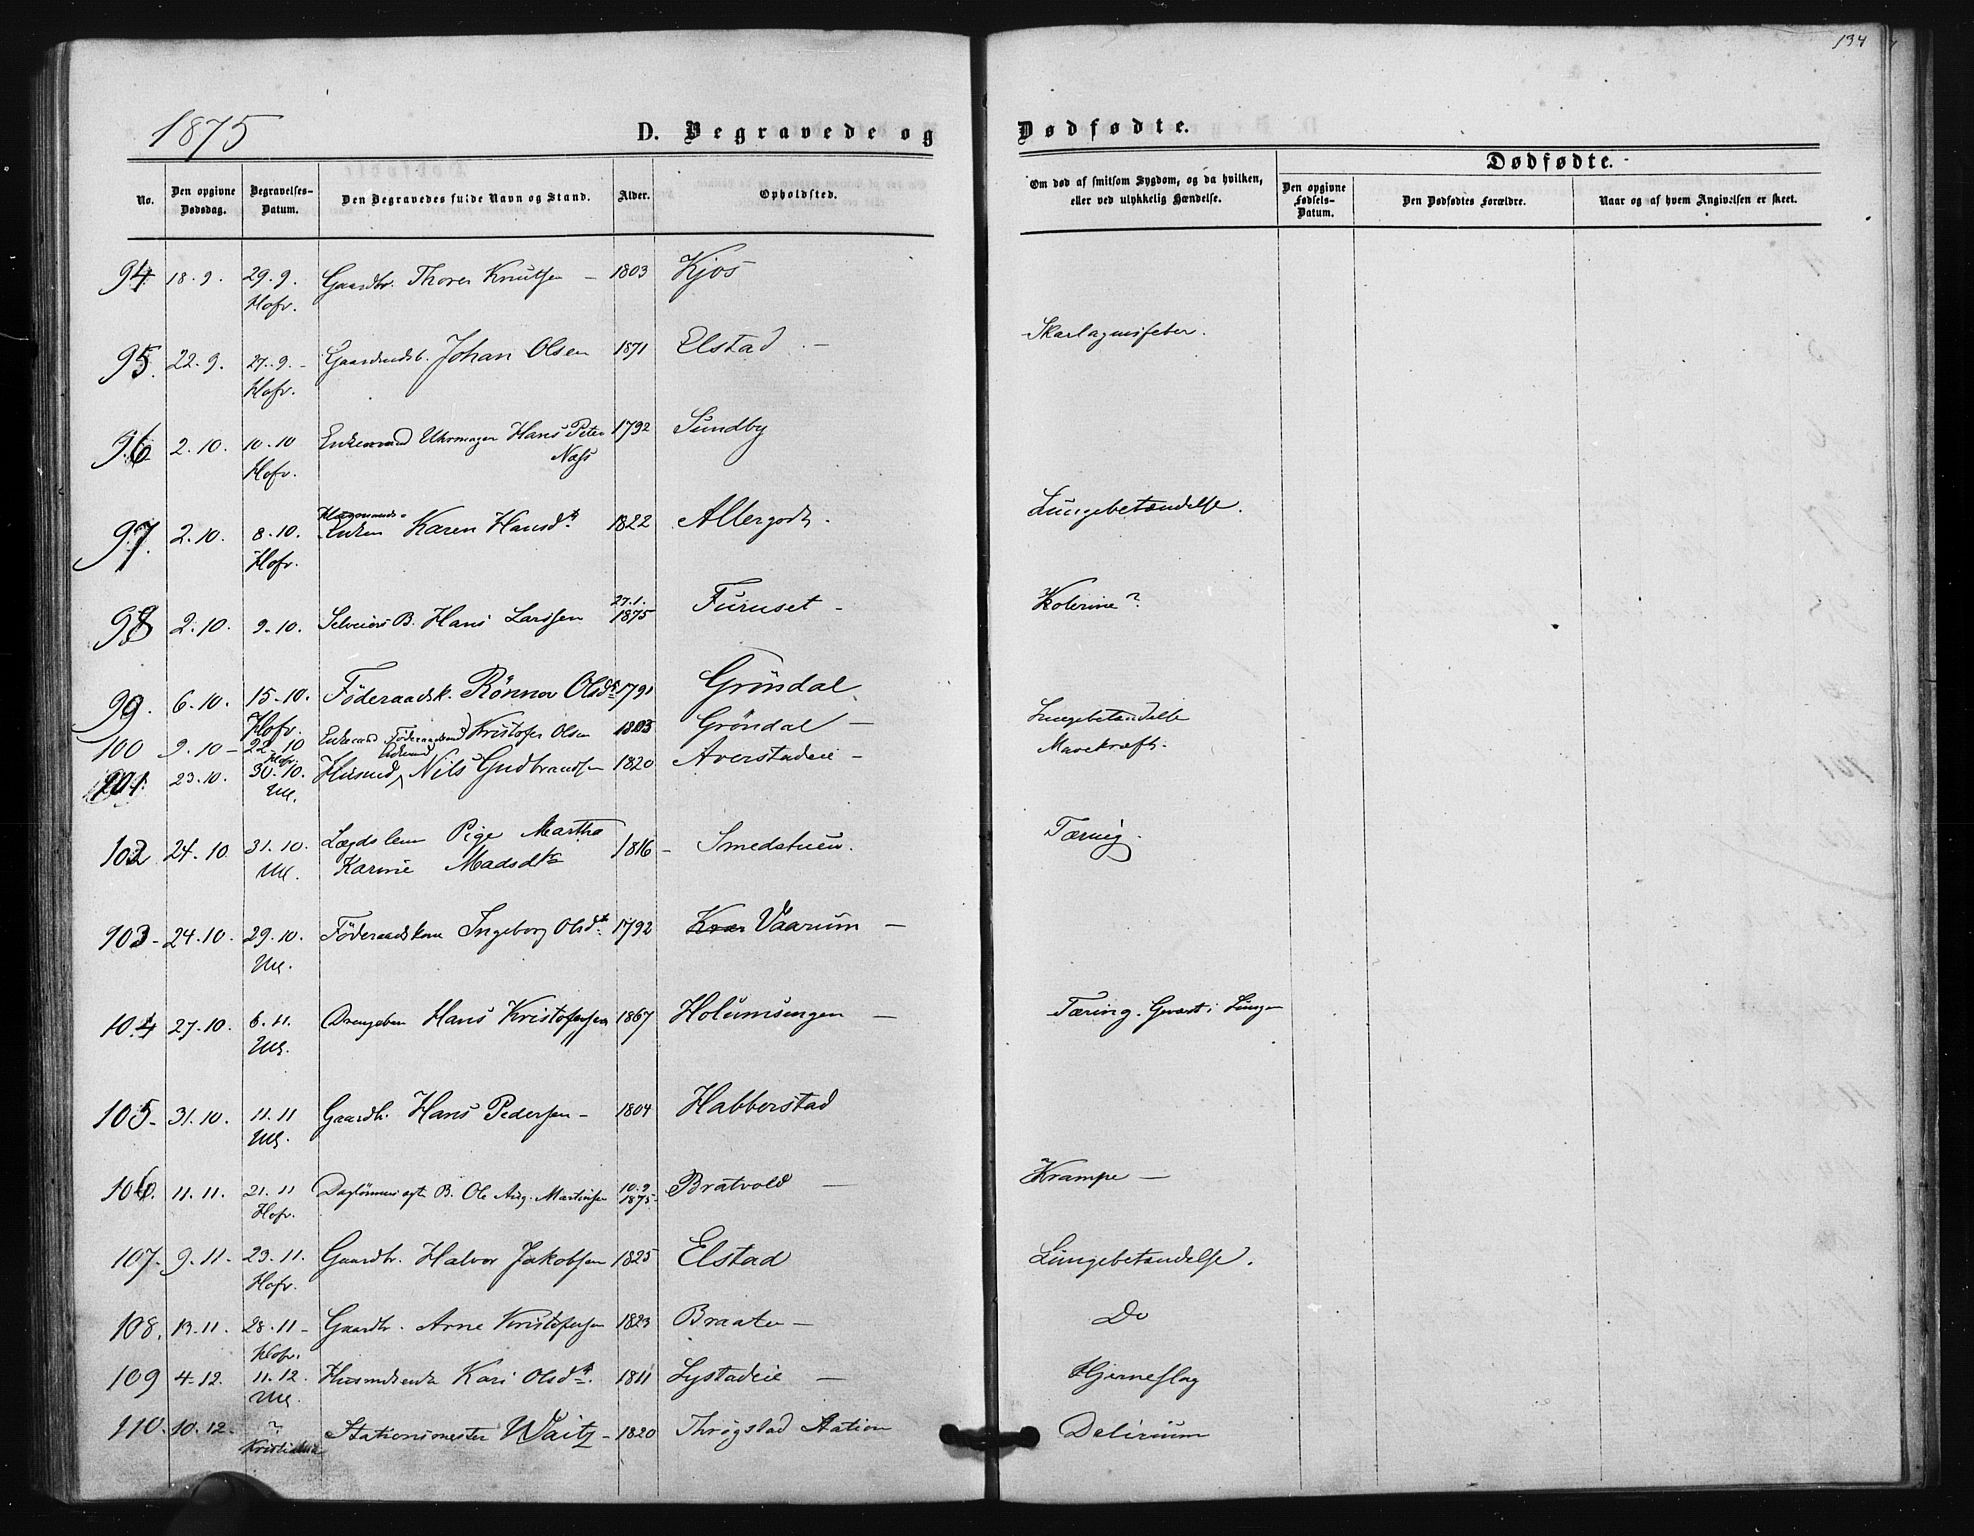 134
1875
D. Begravede og Dødfødte.
Dødfødte.
No.
Den opgivne Dødsdag.
Begravelses-Datum.
Den Begravedes fulde Navn og Stand.
Alder.
Opholdsted.
Om død af smitsom Sygdom, og da hvilken, eller ved ulykkelig Hændelse.
Den opgivne Fødsels-Datum.
Den Dødfødtes Forældre.
Naar og af hvem Angivelsen er skeet.
94 18.9. 29.9. Gaardbr. Thorer Knutsen – 1803 Kjos
Hofr.
95. 22.9. 27.9. Johan Olsen 1871 Elstad – Skarlagensfeber.
Hofr.
96 2.10. 10.10 Enkemand Uhrmager Hans Peter 1792 Sundby
Hofr. Næss
97. 2.10. 8.10. Enken Karen Hansdt. 1822 Allergodt. Lungebetændelse.
Hofr.
98 2.10. 9.10. Selveiers B. Hans Larssen 27.1. 1875 Furuset – Kolerine?
99. 6.10. 15.10. Föderaadsk. Rönnov Olsdt. 1791 Gröndal
Hofr.
100 9.10 – 22.10 Enkemand Föderaadsmand Kristofer Olsen 1803 Gröndal – Lungebetændelse
Hofr.
101. 23.10. 30.10. Husmd Enkemd Nils Gudbrandsen 1820 Averstadeie – Mavekræft.
Ull.
102 24.10 31.10. Lægdslem Pige Martha 1816 – Smedstuen. Tæring.
Ull. Karine Madsdtr
103 – 24.10. 29.10. Föderaadskone Ingeborg Olsdt. 1792 Vaarum –
Ull.
104 27.10. 6.11. Drengebarn Hans Kristofersen 1867 Holumsengen – Tæring. i Lungen
Ull.
105 – 31.10. 11.11 Gaardbr. Hans Pedersen – 1804 Habberstad
Ull.
106. 11.11. 21.11 Daglönners ægte B. Ole Aug. Martinsen 10.9 1875 – Bratvold – Krampe –
Hofr.
107. 9.11 – 23.11. Gaardbr. Halvor Jakobsen 1825 Elstad Lungebetændelse.
Hofr.
108. 13.11. 28.11 – Gaardbr. Arne Kristofersen 1823 Braaten – Do
Hofr.
109 4.12. 11.12. Husmdsenke Kari Olsdt. 1811 Lystadeie – Hjerneslag
Ull.
110. 10.12. ? Stationsmester Waitz – 1820 Thrögstad Station Delirium
Kristiania